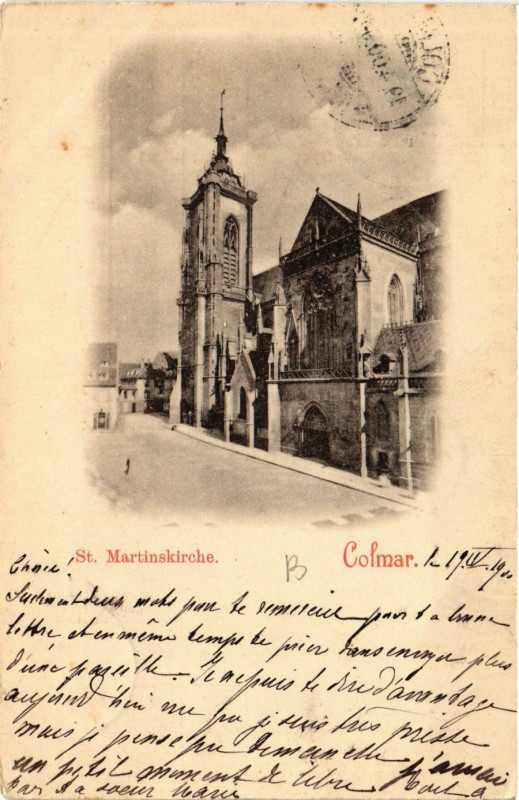 St. Martinskirche.
B
Colmar. le 19.IV.1900
Chère!
Seulement deux mots pour te remercier pour ta bonne
lettre et en même temps te prier d'en envoyer plus
d'une pareille. Je ne puis te dire d'avantage
aujourd'hui vu que je suis très pressée
mais je pense que demain elle j'aurai
un petit moment de libre Tout à
par ta soeur Marie